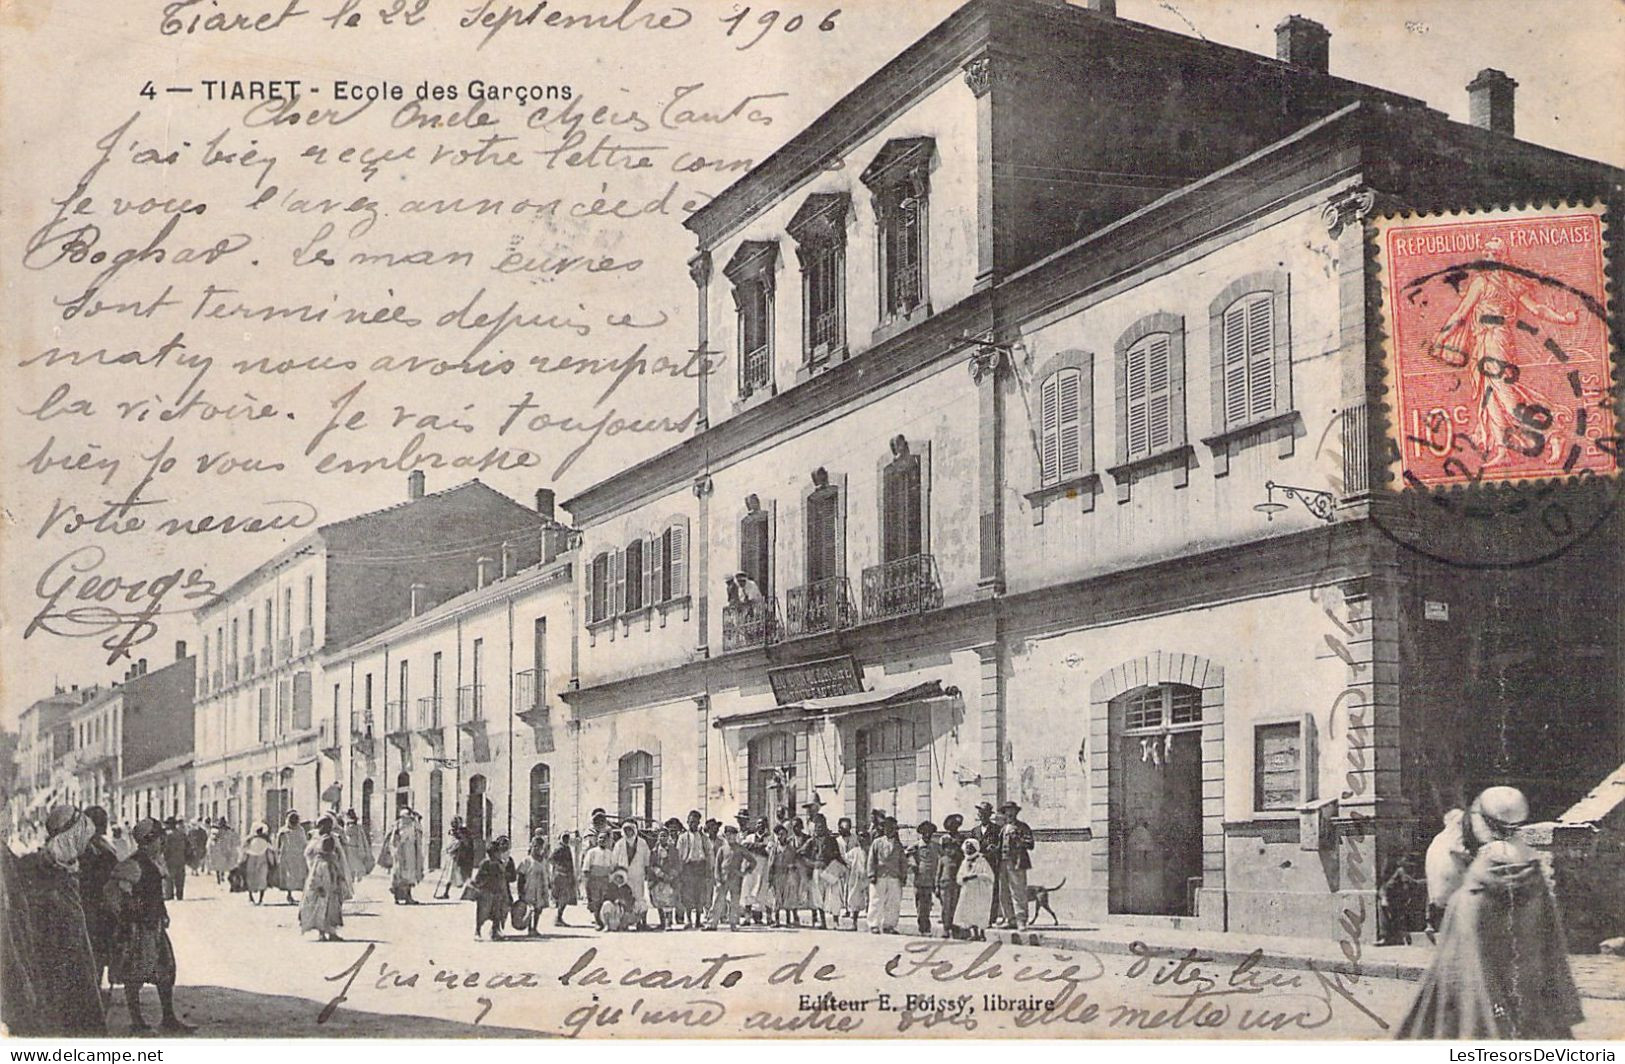 Tiaret le 22 Septembre 1906
4 — TIARET - Ecole des Garçons
Cher Oncle chères Tantes
J'ai bien reçu votre lettre com
je vous l'avez annoncée de
Boghar. Les man euvres
sont terminées depuis ce
matin nous avons remporté
la victoire. Je vais toujours
bien Je vous embrasse
Votre neveu
Georges
REPUBLIQUE FRANÇAISE
10c
POSTES
TIARET
22 - 9
06
ORAN
J'ai reçu la carte de Felicie dites lui
qu'une autre fois elle mette un
peu
Editeur E. Foissy, libraire
LesTresorsDeVictoria.com